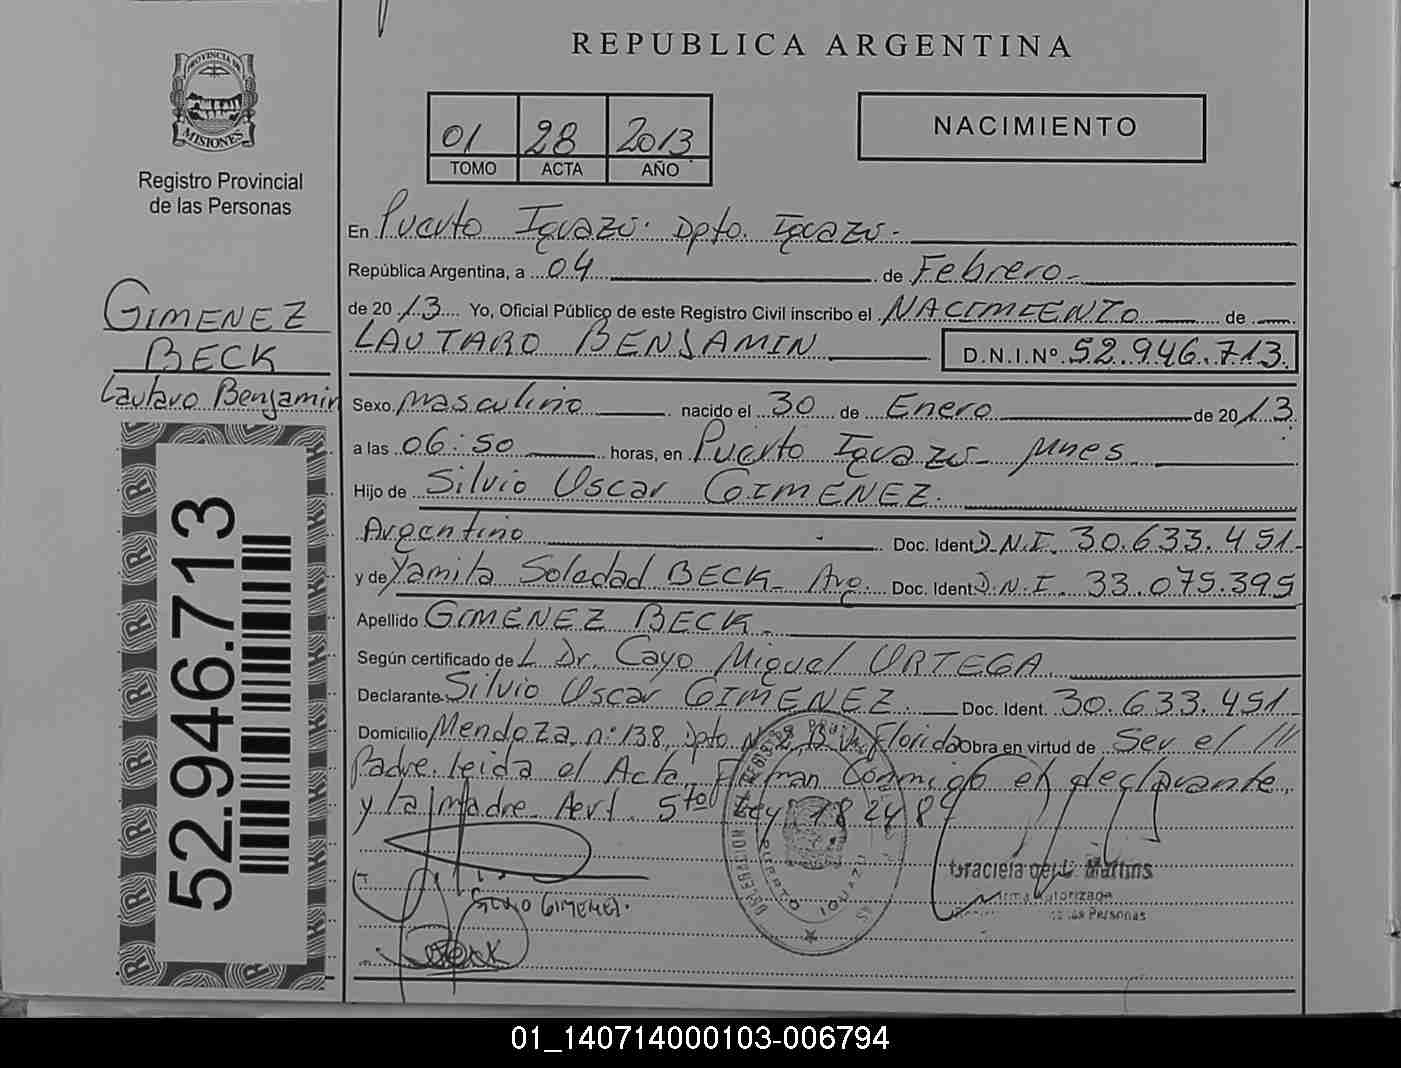 REPUBLICA ARGENTINA
PROVINCIA DE
MISIONES
Registro Provincial
de las Personas
01 28 2013
TOMO ACTA AÑO
NACIMIENTO
En Puerto Iguazú. Dpto. Iguazú.-
República Argentina, a 04 de Febrero-
de 2013 Yo, Oficial Público de este Registro Civil inscribo el NACIMIENTO de
LAUTARO BENJAMIN D.N.I.Nº 52.946.713.
GIMENEZ
BECK
Lautaro Benjamin
Sexo masculino nacido el 30 de Enero de 2013
a las 06:50 horas, en Puerto Iguazú- Mnes
Hijo de Silvio Oscar GIMENEZ.
Argentino Doc. Ident. D.N.I. 30.633.451-
y de Yamila Soledad BECK- Arg. Doc. Ident. D.N.I. 33.075.395
Apellido GIMENEZ BECK-
Según certificado del Dr. Cayo Miguel ORTEGA
Declarante Silvio Oscar GIMENEZ Doc. Ident. 30.633.451
Domicilio Mendoza nº 138, Dpto Nº 2 Bº Florida Obra en virtud de Ser el
Padre. leida el Acta, Firman conmigo el declarante
y la madre. Art. 5to Ley 18248
52.946.713
SILVIO GIMENEZ.
Beck
DELEGACION
PUERTO IGUAZU
Graciela del C. Martins
Firma Autorizada
de las Personas
01_140714000103-006794